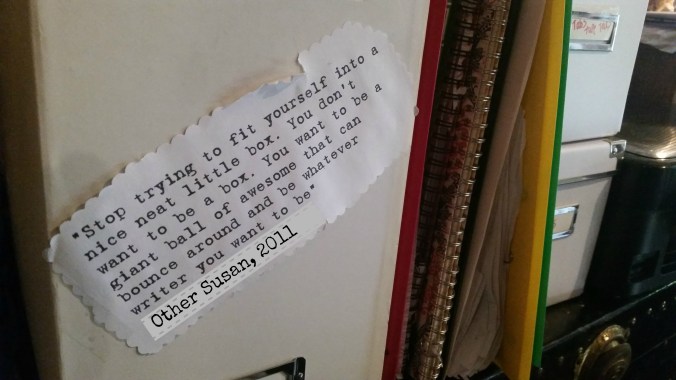 "Stop trying to fit yourself into a
nice neat little box. You don't
want to be a box. You want to be a
giant ball of awesome that can
bounce around and be whatever
writer you want to be"
Other Susan, 2011